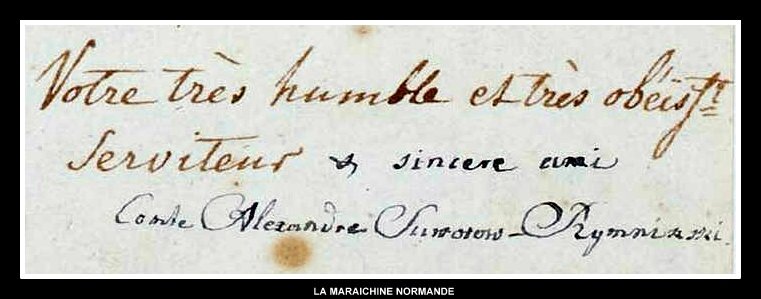 Votre très humble et très obéisst
serviteur & sincere ami
Comte Alexandre Suworow-Rymnikski.
LA MARAICHINE NORMANDE